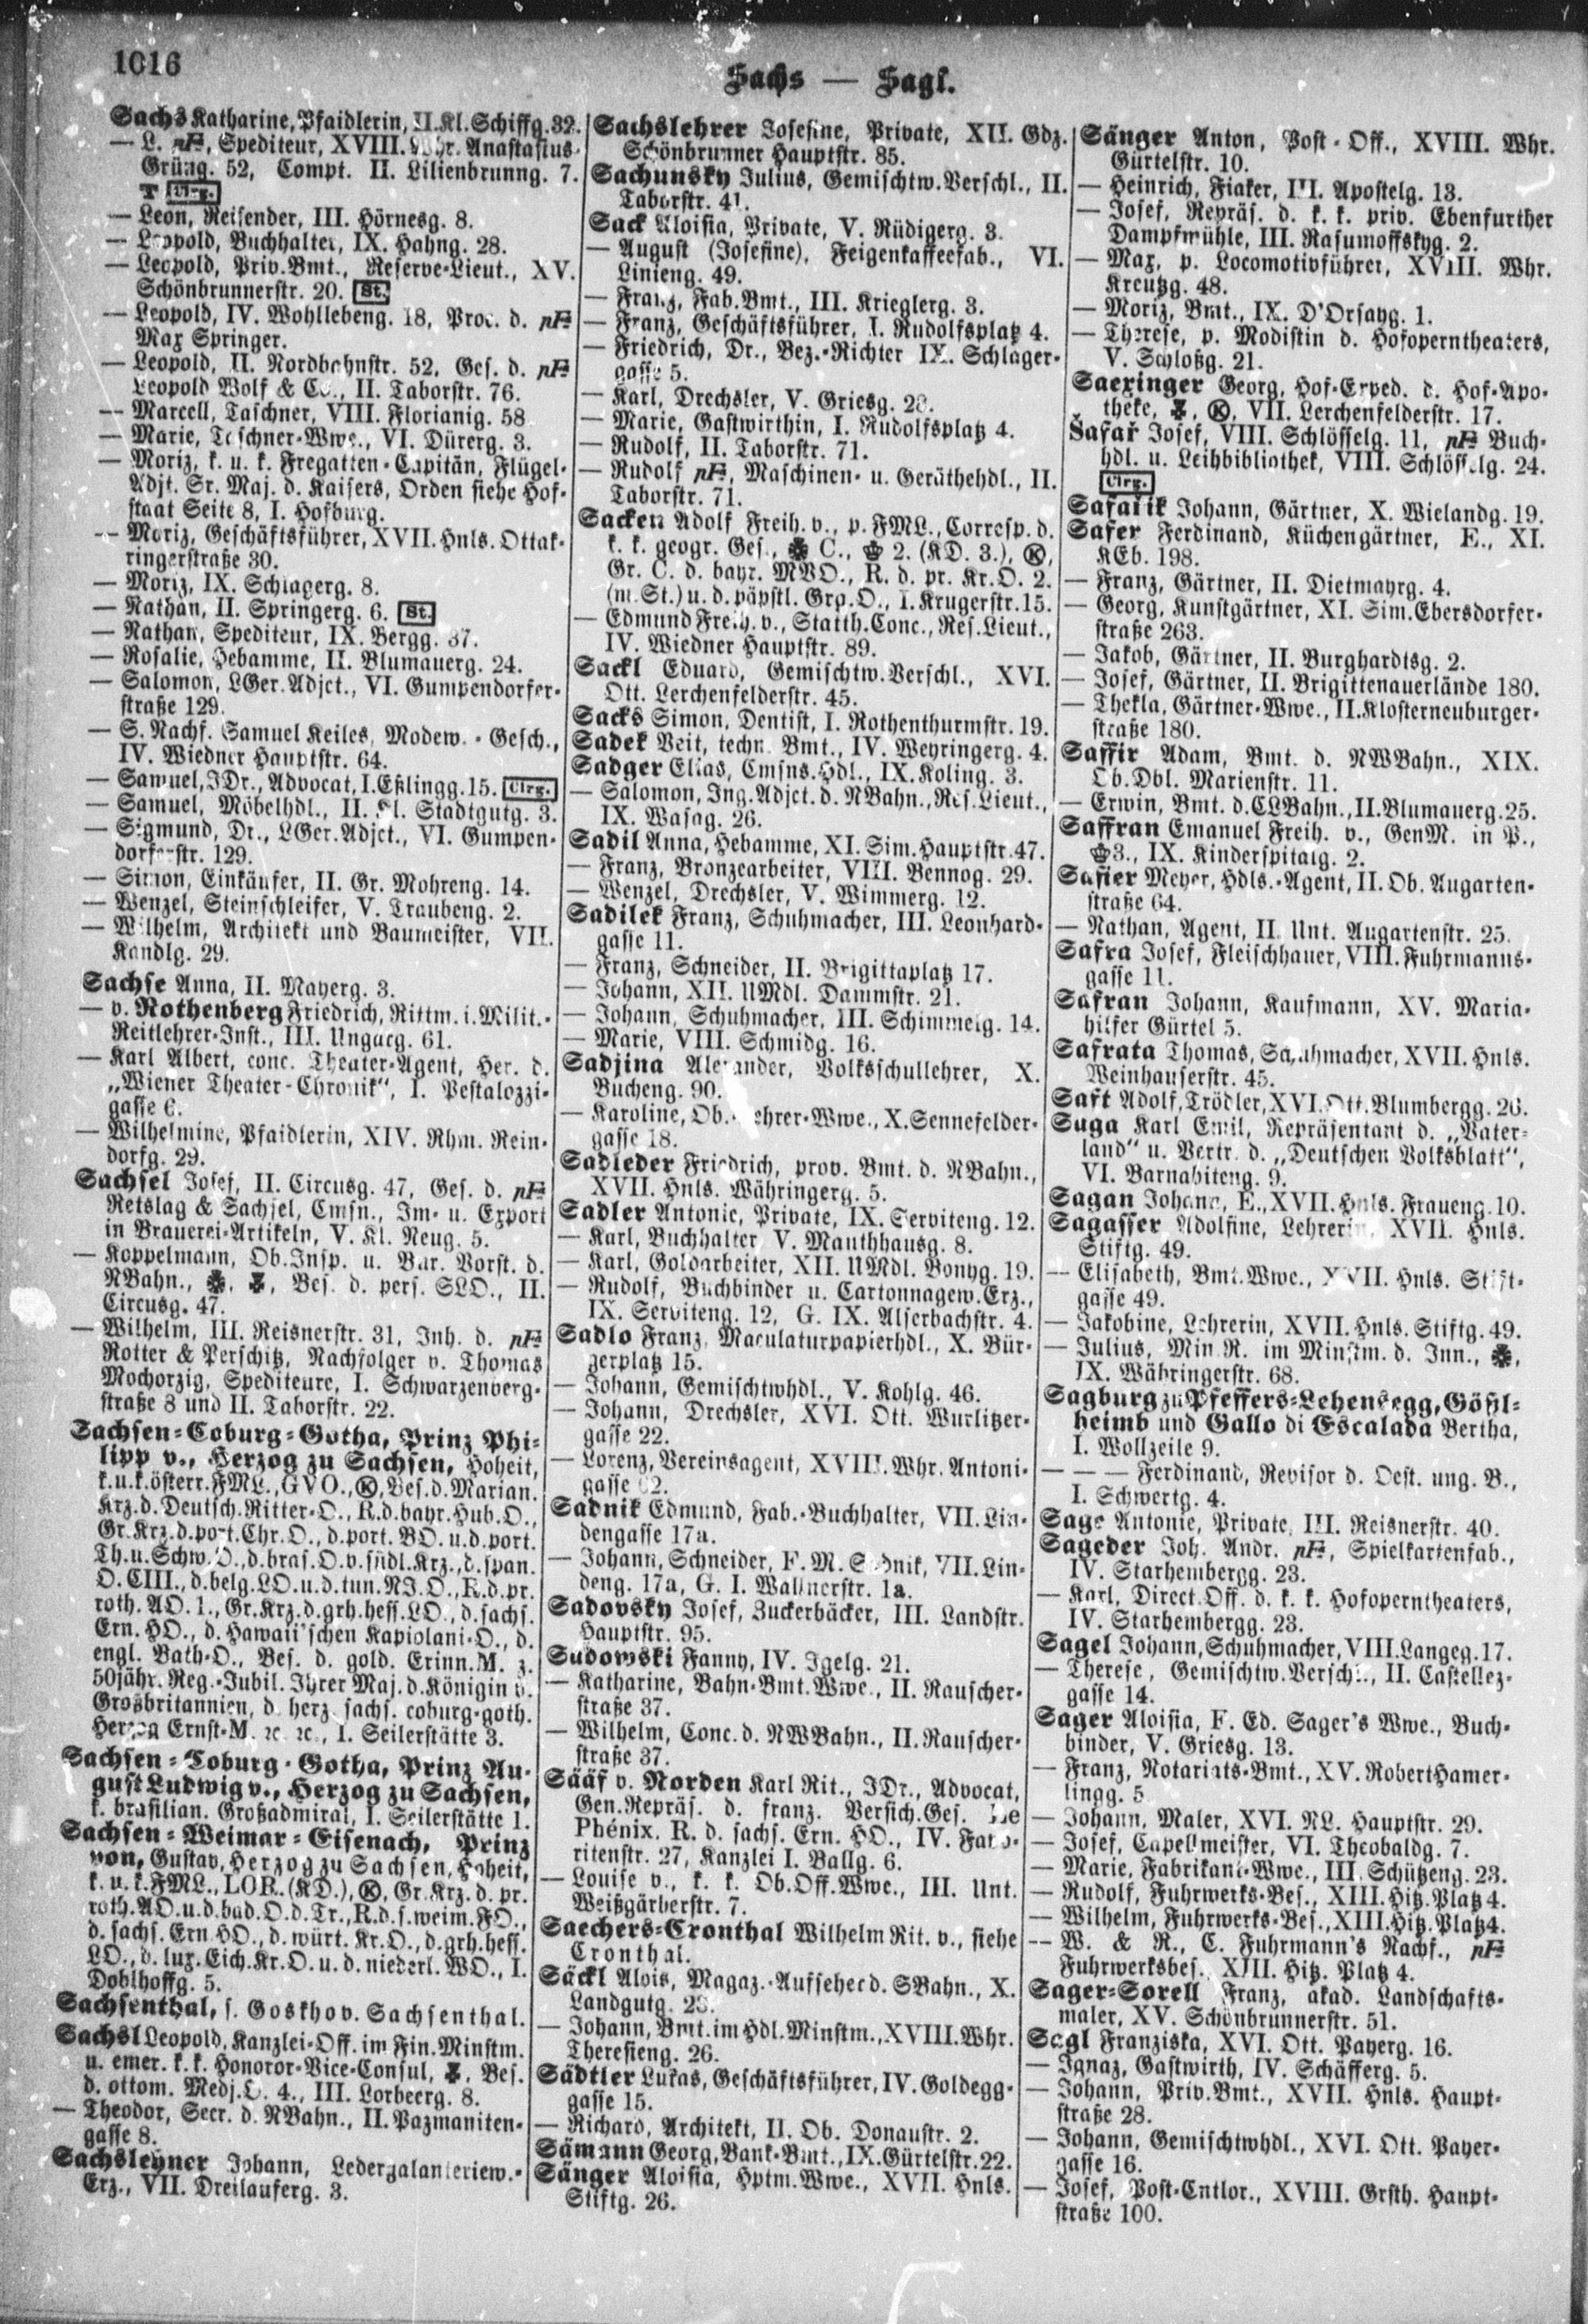 1016
Sachs — Sagl.
Sachs Katharine, Pfaidlerin, II. Kl. Schiffg. 32.
— L. nF, Spediteur, XVIII. Anastasius-
Grüng. 52, Compt. II. Lilienbrunng. 7.
T Clrg.
— Leon, Reisender, III. Hörnesg. 8.
— Leopold, Buchhalter, IX. Hahng. 28.
— Leopold, Priv.Bmt., Reserve-Lieut., XV.
Schönbrunnerstr. 20. St.
— Leopold, IV. Wohllebeng. 18, Proc. d. nF
Max Springer.
— Leopold, II. Nordbahnstr. 52, Ges. d. nF
Leopold Wolf & Co., II. Taborstr. 76.
— Marcell, Taschner, VIII. Florianig. 58
— Marie, Taschner-Wwe., VI. Dürerg. 3.
— Moriz, k. u. k. Fregatten-Capitän, Flügel-
Adjt. Sr. Maj. d. Kaisers, Orden siehe Hof-
staat Seite 8, I. Hofburg.
— Moriz, Geschäftsführer, XVII. Hnls. Ottak-
ringerstraße 30.
— Moriz, IX. Schlagerg. 8.
— Nathan, II. Springerg. 6. St.
— Nathan, Spediteur, IX. Bergg. 37.
— Rosalie, Hebamme, II. Blumauerg. 24.
— Salomon, LGer.Adjct., VI. Gumpendorfer-
straße 129.
— S. Nachf. Samuel Keiles, Modew.-Gesch.,
IV. Wiedner Hauptstr. 64.
— Samuel, JDr., Advocat, I. Eßlingg. 15. Clrg.
— Samuel, Möbelhdl., II. Kl. Stadtgutg. 3.
— Sigmund, Dr., LGer.Adjct., VI. Gumpen-
dorferstr. 129.
— Simon, Einkäufer, II. Gr. Mohreng. 14.
— Wenzel, Steinschleifer, V. Traubeng. 2.
— Wilhelm, Architekt und Baumeister, VII.
Kandlg. 29.
Sachse Anna, II. Mayerg. 3.
— v. Rothenberg Friedrich, Rittm. i. Milit.-
Reitlehrer-Inst., III. Ungarg. 61.
— Karl Albert, conc. Theater-Agent, Her. d.
„Wiener Theater-Chronik“, I. Pestalozzi-
gasse 6.
— Wilhelmine, Pfaidlerin, XIV. Rhm. Rein-
dorfg. 29.
Sachsel Josef, II. Circusg. 47, Ges. d. nF
Retslag & Sachsel, Cmsn., Im- u. Export
in Brauerei-Artikeln, V. Kl. Neug. 5.
— Koppelmann, Ob.Insp. u. Bar. Vorst. d.
NBahn., Bes. d. pers. SLO., II.
Circusg. 47.
— Wilhelm, III. Reisnerstr. 31, Inh. d. nF
Rotter & Perschitz, Nachfolger v. Thomas
Mochorzig, Spediteure, I. Schwarzenberg-
straße 8 und II. Taborstr. 22.
Sachsen-Coburg-Gotha, Prinz Phi-
lipp v., Herzog zu Sachsen, Hoheit,
k.u.k.österr.FML., GVO., Ⓚ, Bes.d.Marian.
Krz.d.Deutsch.Ritter-O., R.d.bayr.Hub.O.,
Gr.Krz.d.port.Chr.O., d.port. BO. u.d.port.
Th.u.Schw.O., d.bras.O.v.südl.Krz., d.span.
O. CIII., d.belg.LO.u.d.tun.NJ.O., R.d.pr.
roth. AO. 1., Gr.Krz.d.grh.hess.LO., d.sachs.
Ern. HO., d. Hawaii'schen Kapiolani-O., d.
engl. Bath-O., Bes. d. gold. Erinn.M. z.
50jähr.Reg.-Jubil. Ihrer Maj. d.Königin v.
Großbritannien, d. herz. sachs. coburg-goth.
Herzog Ernst-M. ꝛc. ꝛc., I. Seilerstätte 3.
Sachsen-Coburg-Gotha, Prinz Au-
gust Ludwig v., Herzog zu Sachsen,
k. brasilian. Großadmiral, I. Seilerstätte 1.
Sachsen-Weimar-Eisenach, Prinz
von, Gustav, Herzog zu Sachsen, Hoheit,
k. u. k. FML., LOR. (KD.), Ⓚ, Gr.Krz. d. pr.
roth.AO.u.d.bad.O.d.Tr., R.d.s.weim.FO.,
d. sachs. Ern HO., d. würt. Kr.O., d.grh.hess.
LO., d. lux. Eich.Kr.O. u. d. niederl. WO., I.
Doblhoffg. 5.
Sachsenthal, s. Goskho v. Sachsenthal.
Sachsl Leopold, Kanzlei-Off. im Fin. Minstm.
u. emer. k. k. Honoror-Vice-Consul, Bes.
d. ottom. Medj.O. 4., III. Lorbeerg. 8.
— Theodor, Secr. d. NBahn., II. Pazmaniten-
gasse 8.
Sachsleyner Johann, Ledergalanteriew.-
Erz., VII. Dreilauferg. 3.
Sachslehrer Josefine, Private, XII. Gdz.
Schönbrunner Hauptstr. 85.
Sachunsky Julius, Gemischtw.Verschl., II.
Taborstr. 41.
Sack Aloisia, Private, V. Rüdigerg. 3.
— August (Josefine), Feigenkaffeefab., VI.
Linieng. 49.
— Franz, Fab.Bmt., III. Krieglerg. 3.
— Franz, Geschäftsführer, I. Rudolfsplatz 4.
— Friedrich, Dr., Bez.-Richter IX. Schlager-
gasse 5.
— Karl, Drechsler, V. Griesg. 28.
— Marie, Gastwirthin, I. Rudolfsplatz 4.
— Rudolf, II. Taborstr. 71.
— Rudolf nF, Maschinen- u. Geräthehdl., II.
Taborstr. 71.
Sacken Adolf Freih. v., p. FML., Corresp. d.
k. k. geogr. Ges., C., 2. (KD. 3.), Ⓚ,
Gr. C. d. bayr. MVO., R. d. pr. Kr.O. 2.
(m. St.) u. d. päpstl. Grg.O., I. Krugerstr. 15.
— Edmund Freih. v., Statth.Conc., Res.Lieut.,
IV. Wiedner Hauptstr. 89.
Sackl Eduard, Gemischtw.Verschl., XVI.
Ott. Lerchenfelderstr. 45.
Sacks Simon, Dentist, I. Rothenthurmstr. 19.
Sadek Veit, techn. Bmt., IV. Weyringerg. 4.
Sadger Elias, Cmsns.Hdl., IX. Koling. 3.
— Salomon, Ing.Adjct. d. NBahn., Res.Lieut.,
IX. Wasag. 26.
Sadil Anna, Hebamme, XI. Sim. Hauptstr. 47.
— Franz, Bronzearbeiter, VIII. Bennog. 29.
— Wenzel, Drechsler, V. Wimmerg. 12.
Sadilek Franz, Schuhmacher, III. Leonhard-
gasse 11.
— Franz, Schneider, II. Brigittaplatz 17.
— Johann, XII. UMdl. Dammstr. 21.
— Johann, Schuhmacher, III. Schimmelg. 14.
— Marie, VIII. Schmidg. 16.
Sadjina Alexander, Volksschullehrer, X.
Bucheng. 90.
— Karoline, Ob.-Lehrer-Wwe., X. Sennefelder-
gasse 18.
Sadleder Friedrich, prov. Bmt. d. NBahn.,
XVII. Hnls. Währingerg. 5.
Sadler Antonie, Private, IX. Serviteng. 12.
— Karl, Buchhalter V. Mauthhausg. 8.
— Karl, Goldarbeiter, XII. UMdl. Bonyg. 19.
— Rudolf, Buchbinder u. Cartonnagew.Erz.,
IX. Serviteng. 12, G. IX. Alserbachstr. 4.
Sadlo Franz, Maculaturpapierhdl., X. Bür-
gerplatz 15.
— Johann, Gemischtwhdl., V. Kohlg. 46.
— Johann, Drechsler, XVI. Ott. Wurlitzer-
gasse 22.
— Lorenz, Vereinsagent, XVIII. Whr. Antoni-
gasse 62.
Sadnik Edmund, Fab.-Buchhalter, VII. Lin-
dengasse 17a.
— Johann, Schneider, F. M. Sadnik, VII. Lin-
deng. 17a, G. I. Wallnerstr. 1a.
Sadovsky Josef, Zuckerbäcker, III. Landstr.
Hauptstr. 95.
Sadowski Fanny, IV. Igelg. 21.
— Katharine, Bahn-Bmt.Wwe., II. Rauscher-
straße 37.
— Wilhelm, Conc. d. NWBahn., II. Rauscher-
straße 37.
Sääf v. Norden Karl Rit., JDr., Advocat,
Gen.Repräs. d. franz. Versich.Ges. Le
Phénix. R. d. sachs. Ern. HO., IV. Favo-
ritenstr. 27, Kanzlei I. Ballg. 6.
— Louise v., k. k. Ob.Off.Wwe., III. Unt.
Weißgärberstr. 7.
Saechers-Cronthal Wilhelm Rit. v., siehe
Cronthal.
Säckl Alois, Magaz.-Aufseher d. SBahn., X.
Landgutg. 23.
— Johann, Bmt. im Hdl. Minstm., XVIII. Whr.
Theresieng. 26.
Sädtler Lukas, Geschäftsführer, IV. Goldegg-
gasse 15.
— Richard, Architekt, II. Ob. Donaustr. 2.
Sämann Georg, Bank-Bmt., IX. Gürtelstr. 22.
Sänger Aloisia, Hptm.Wwe., XVII. Hnls.
Stiftg. 26.
Sänger Anton, Post-Off., XVIII. Whr.
Gürtelstr. 10.
— Heinrich, Fiaker, III. Apostelg. 13.
— Josef, Repräs. d. k. k. priv. Ebenfurther
Dampfmühle, III. Rasumoffskyg. 2.
— Max, p. Locomotivführer, XVIII. Whr.
Kreutzg. 48.
— Moriz, Bmt., IX. D'Orsayg. 1.
— Therese, p. Modistin d. Hofoperntheaters,
V. Schloßg. 21.
Saexinger Georg, Hof-Exped. d. Hof-Apo-
theke, Ⓚ, VII. Lerchenfelderstr. 17.
Šafař Josef, VIII. Schlösselg. 11, nF Buch-
hdl. u. Leihbibliothek, VIII. Schlösselg. 24.
Clrg.
Safařik Johann, Gärtner, X. Wielandg. 19.
Safer Ferdinand, Küchengärtner, E., XI.
KEb. 198.
— Franz, Gärtner, II. Dietmayrg. 4.
— Georg, Kunstgärtner, XI. Sim. Ebersdorfer-
straße 263.
— Jakob, Gärtner, II. Burghardtsg. 2.
— Josef, Gärtner, II. Brigittenauerlände 180.
— Thekla, Gärtner-Wwe., II. Klosterneuburger-
straße 180.
Saffir Adam, Bmt. d. NWBahn., XIX.
Ob. Dbl. Marienstr. 11.
— Erwin, Bmt. d. CLBahn., II. Blumauerg. 25.
Saffran Emanuel Freih. v., GenM. in P.,
3., IX. Kinderspitalg. 2.
Safier Meyer, Hdls.-Agent, II. Ob. Augarten-
straße 64.
— Nathan, Agent, II. Unt. Augartenstr. 25.
Safra Josef, Fleischhauer, VIII. Fuhrmanns-
gasse 11.
Safran Johann, Kaufmann, XV. Maria-
hilfer Gürtel 5.
Safrata Thomas, Schuhmacher, XVII. Hnls.
Weinhauserstr. 45.
Saft Adolf, Trödler, XVI. Ott. Blumbergg. 26.
Saga Karl Emil, Repräsentant d. „Vater-
land“ u. Vertr. d. „Deutschen Volksblatt“,
VI. Barnabiteng. 9.
Sagan Johann, E., XVII. Hnls. Fraueng. 10.
Sagasser Adolfine, Lehrerin, XVII. Hnls.
Stiftg. 49.
— Elisabeth, Bmt.Wwe., XVII. Hnls. Stift-
gasse 49.
— Jakobine, Lehrerin, XVII. Hnls. Stiftg. 49.
— Julius, Min.R. im Minstm. d. Inn.,
IX. Währingerstr. 68.
Sagburg zu Pfeffers-Lehensegg, Gößl-
heimb und Gallo di Escalada Bertha,
I. Wollzeile 9.
— — — Ferdinand, Revisor d. Oest. ung. B.,
I. Schwertg. 4.
Sage Antonie, Private, III. Reisnerstr. 40.
Sageder Joh. Andr. nF, Spielkartenfab.,
IV. Starhembergg. 23.
— Karl, Direct.Off. d. k. k. Hofoperntheaters,
IV. Starhembergg. 23.
Sagel Johann, Schuhmacher, VIII. Langeg. 17.
— Therese, Gemischtw.Verschl., II. Castellez-
gasse 14.
Sager Aloisia, F. Ed. Sager's Wwe., Buch-
binder, V. Griesg. 13.
— Franz, Notariats-Bmt., XV. RobertHamer-
lingg. 5
— Johann, Maler, XVI. NL. Hauptstr. 29.
— Josef, Capellmeister, VI. Theobaldg. 7.
— Marie, Fabrikant-Wwe., III. Schützeng. 23.
— Rudolf, Fuhrwerks-Bes., XIII. Hitz. Platz 4.
— Wilhelm, Fuhrwerks-Bes., XIII. Hitz. Platz 4.
— W. & R., C. Fuhrmann's Nachf., nF
Fuhrwerksbes., XIII. Hitz. Platz 4.
Sager-Sorell Franz, akad. Landschafts-
maler, XV. Schönbrunnerstr. 51.
Sagl Franziska, XVI. Ott. Payerg. 16.
— Ignaz, Gastwirth, IV. Schäfferg. 5.
— Johann, Priv.Bmt., XVII. Hnls. Haupt-
straße 28.
— Johann, Gemischtwhdl., XVI. Ott. Payer-
gasse 16.
— Josef, Post-Cntlor., XVIII. Grsth. Haupt-
straße 100.